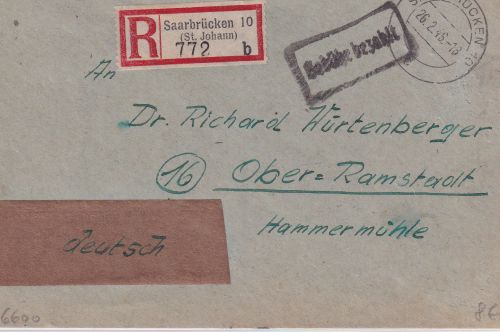 R
Saarbrücken 10
(St. Johann)
772 b
Gebühr bezahlt
BRÜCKEN 10
26.2.46.-18
An
Dr. Richard Würtenberger
16 Ober=Ramstadt
Hammermühle
deutsch
6690
86